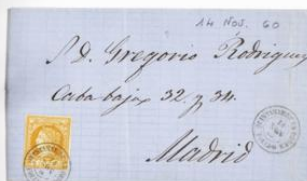 14 NOV. 60
S. D. Gregorio Rodriguez
Caba baja 32. y 34.
Madrid